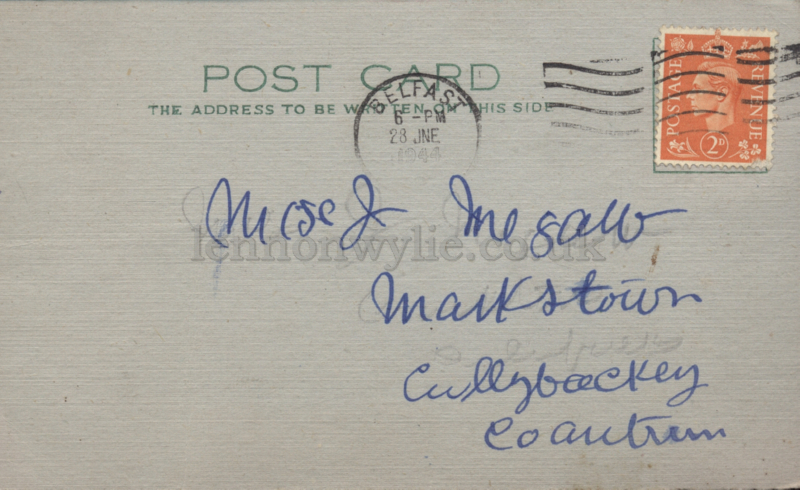 POST CARD
THE ADDRESS TO BE WRITTEN ON THIS SIDE
BELFAST
6 - PM
28 JNE
1944
POSTAGE
REVENUE
2D
Megaw
Markstown
Cullybackey
Co antrim
lennonwylie.co.uk